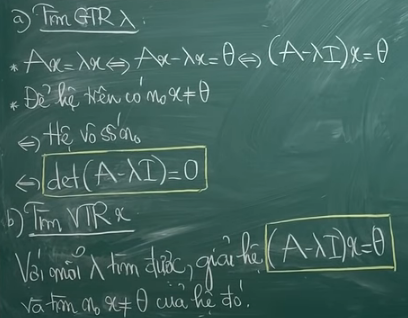 a) Tìm GTR λ:
* Ax = λx ⇔ Ax - λx = θ ⇔ (A - λI)x = θ
* Để hệ trên có n₀ x ≠ θ
⇔ Hệ vô số n₀
⇔ det(A - λI) = 0
b) Tìm VTR x
Với mỗi λ tìm được, giải hệ (A - λI)x = θ
và tìm n₀ x ≠ θ của hệ đó.